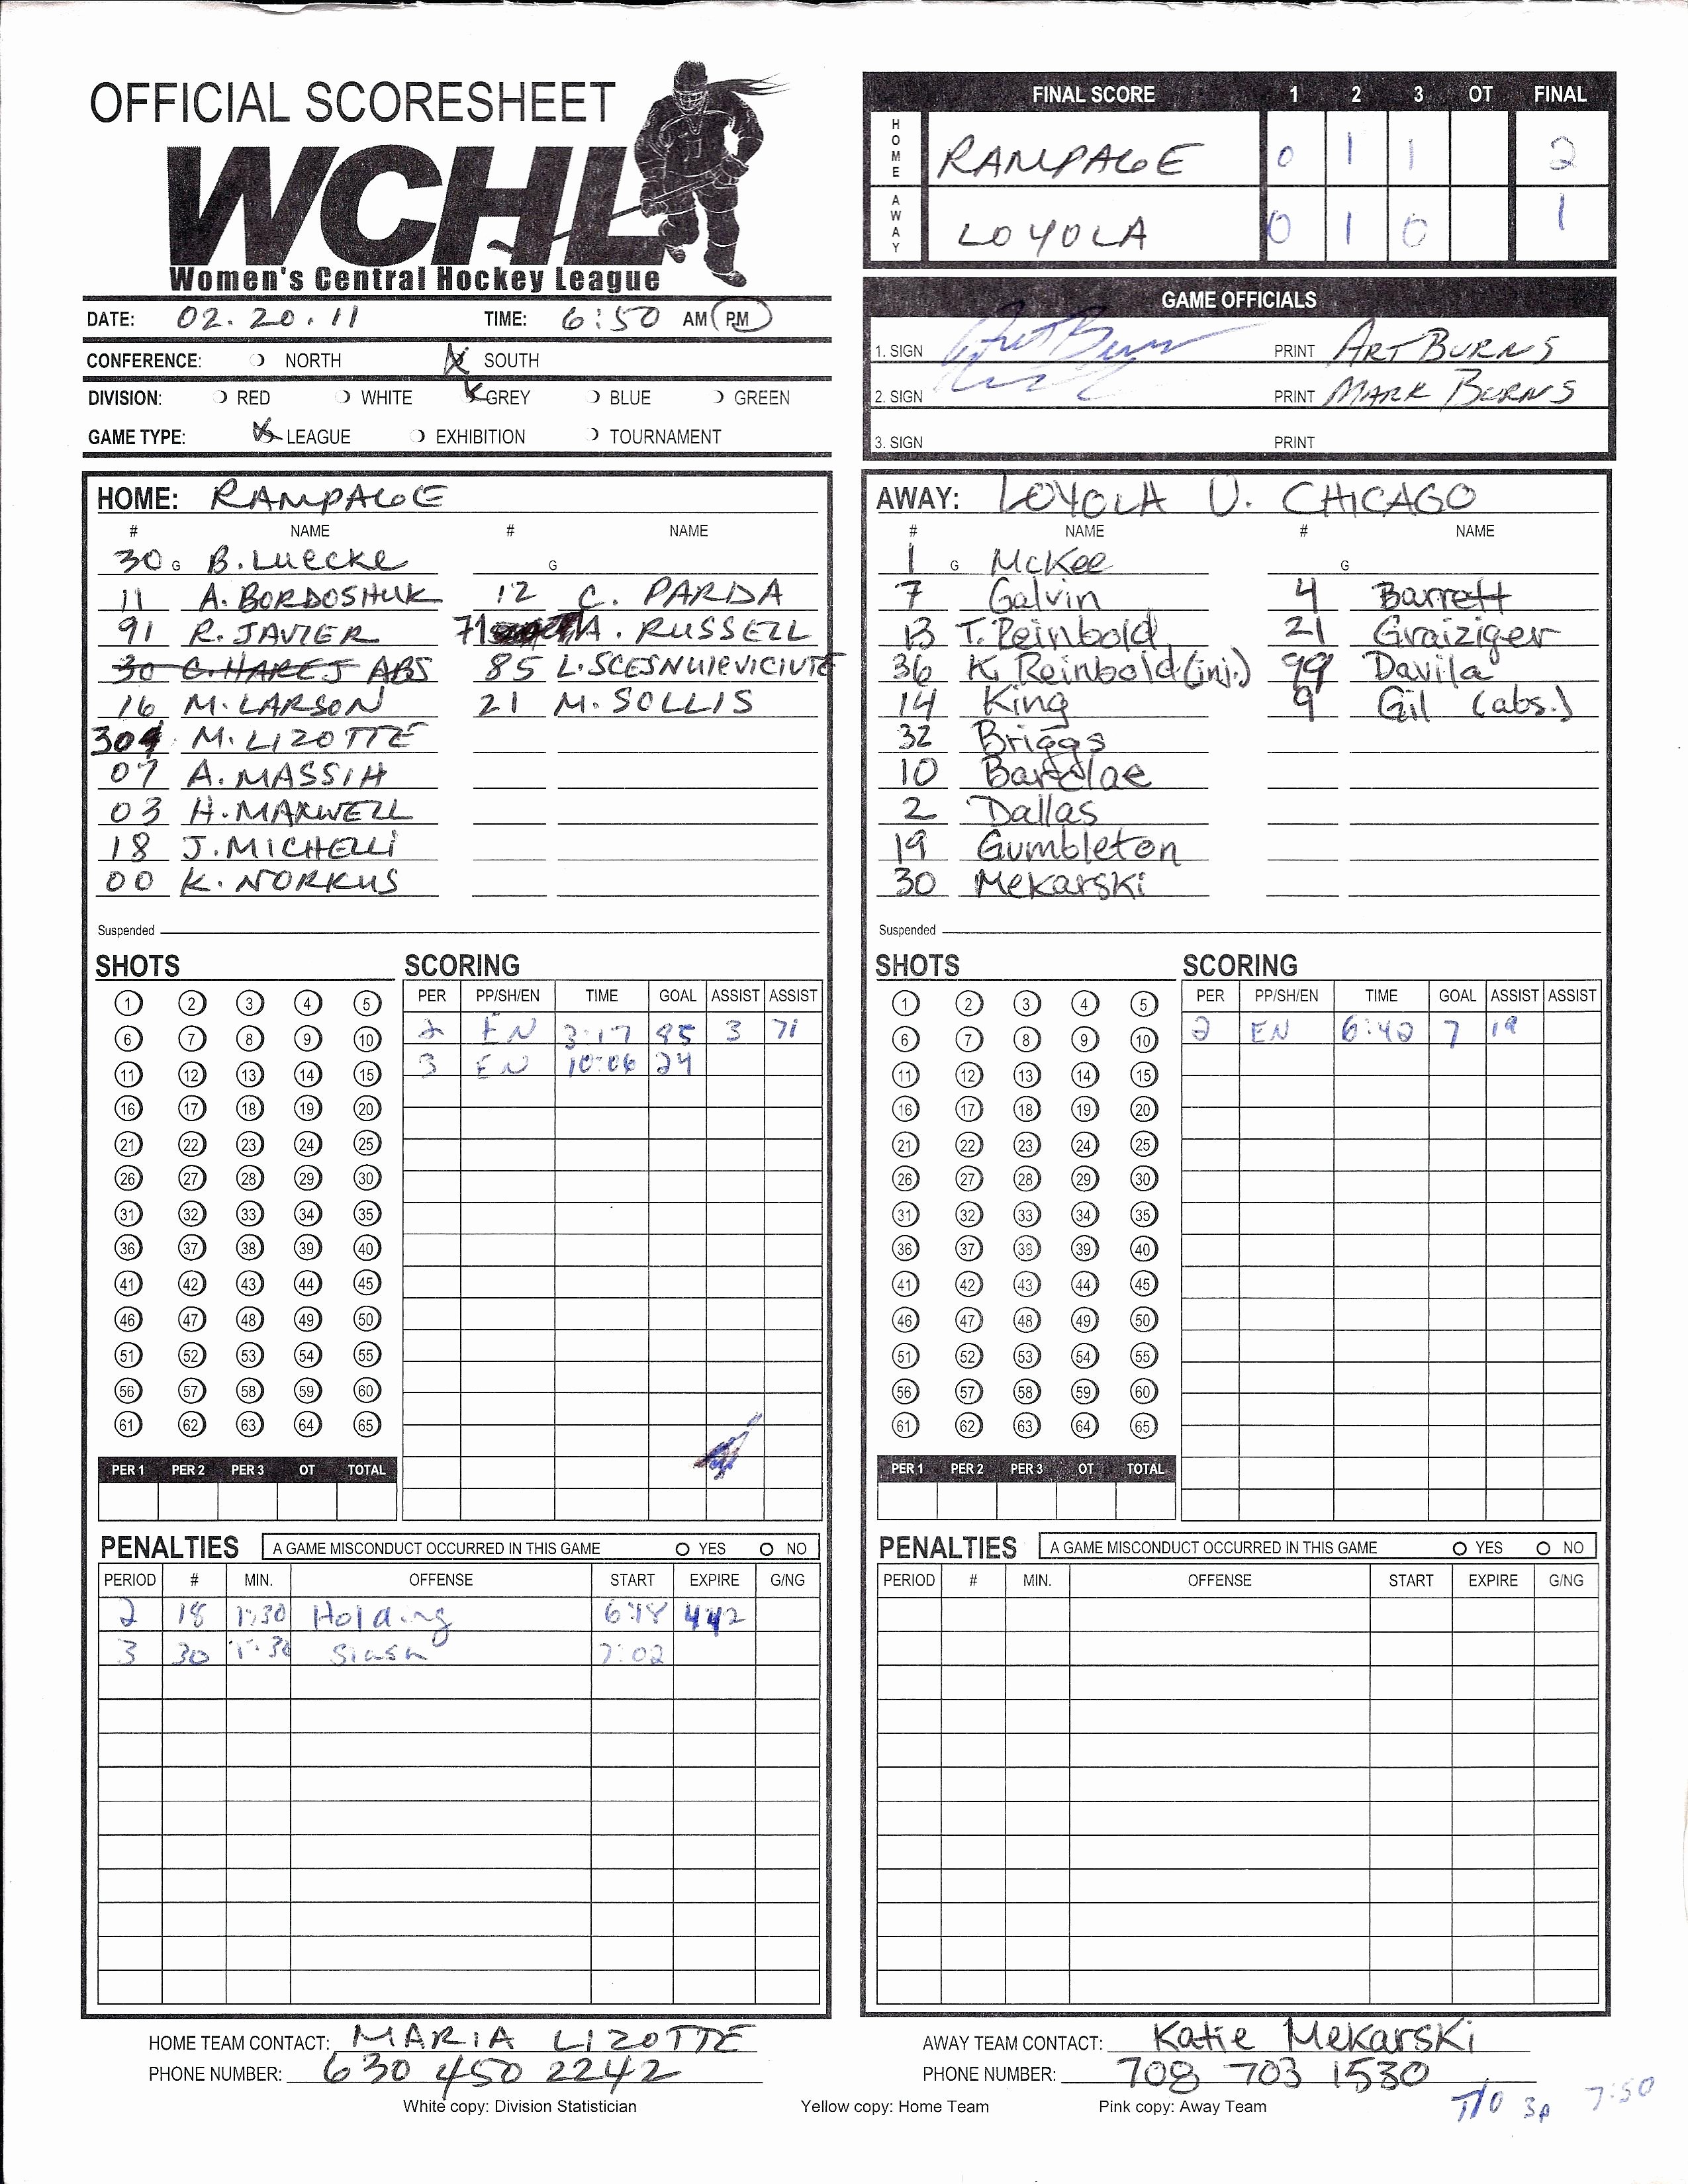 OFFICIAL SCORESHEET
WCHL
Women's Central Hockey League
DATE: 02.20.11 TIME: 6:50 AM PM
CONFERENCE: NORTH SOUTH
DIVISION: RED WHITE GREY BLUE GREEN
GAME TYPE: LEAGUE EXHIBITION TOURNAMENT
FINAL SCORE 1 2 3 OT FINAL
HOME RAMPAGE 0 1 1 2
AWAY LOYOLA 0 1 0 1
GAME OFFICIALS
1. SIGN PRINT ART BURNS
2. SIGN PRINT MARK BURNS
3. SIGN PRINT
HOME: RAMPAGE
# NAME # NAME
30 G B. LUECKE G
11 A. BORDOSHUK 12 C. PARDA
91 R. JAVIER 71 A. RUSSELL
30 C. HAREJ ABS 85 L. SCESNUIEVICIUTE
16 M. LARSON 21 M. SOLLIS
M. LIZOTTE
07 A. MASSIH
03 H. MAXWELL
18 J. MICHELLI
00 K. NORKUS
Suspended
AWAY: LOYOLA U. CHICAGO
# NAME # NAME
1 G McKee G
7 Galvin 4 Barrett
13 T. Reinbold 21 Graiziger
36 K. Reinbold (inj.) 99 Davila
14 King 9 Gil (abs.)
32 Briggs
10 Barclae
2 Dallas
19 Gumbleton
30 Mekarski
Suspended
SHOTS SCORING
PER PP/SH/EN TIME GOAL ASSIST ASSIST
1 2 3 4 5
2 EN 3:17 85 3 71
6 7 8 9 10
3 EN 10:06 24
11 12 13 14 15
16 17 18 19 20
21 22 23 24 25
26 27 28 29 30
31 32 33 34 35
36 37 38 39 40
41 42 43 44 45
46 47 48 49 50
51 52 53 54 55
56 57 58 59 60
61 62 63 64 65
PER 1 PER 2 PER 3 OT TOTAL
SHOTS SCORING
PER PP/SH/EN TIME GOAL ASSIST ASSIST
1 2 3 4 5
2 EN 6:42 7 19
6 7 8 9 10
11 12 13 14 15
16 17 18 19 20
21 22 23 24 25
26 27 28 29 30
31 32 33 34 35
36 37 38 39 40
41 42 43 44 45
46 47 48 49 50
51 52 53 54 55
56 57 58 59 60
61 62 63 64 65
PER 1 PER 2 PER 3 OT TOTAL
PENALTIES A GAME MISCONDUCT OCCURRED IN THIS GAME YES NO
PERIOD # MIN. OFFENSE START EXPIRE G/NG
2 18 1:30 Holding 6:18 442
3 30 1:30 Slash 7:02
PENALTIES A GAME MISCONDUCT OCCURRED IN THIS GAME YES NO
PERIOD # MIN. OFFENSE START EXPIRE G/NG
HOME TEAM CONTACT: MARIA LIZOTTE
PHONE NUMBER: 630 450 2242
AWAY TEAM CONTACT: Katie Mekarski
PHONE NUMBER: 708 703 1530
White copy: Division Statistician Yellow copy: Home Team Pink copy: Away Team
T/O 3P 7:50